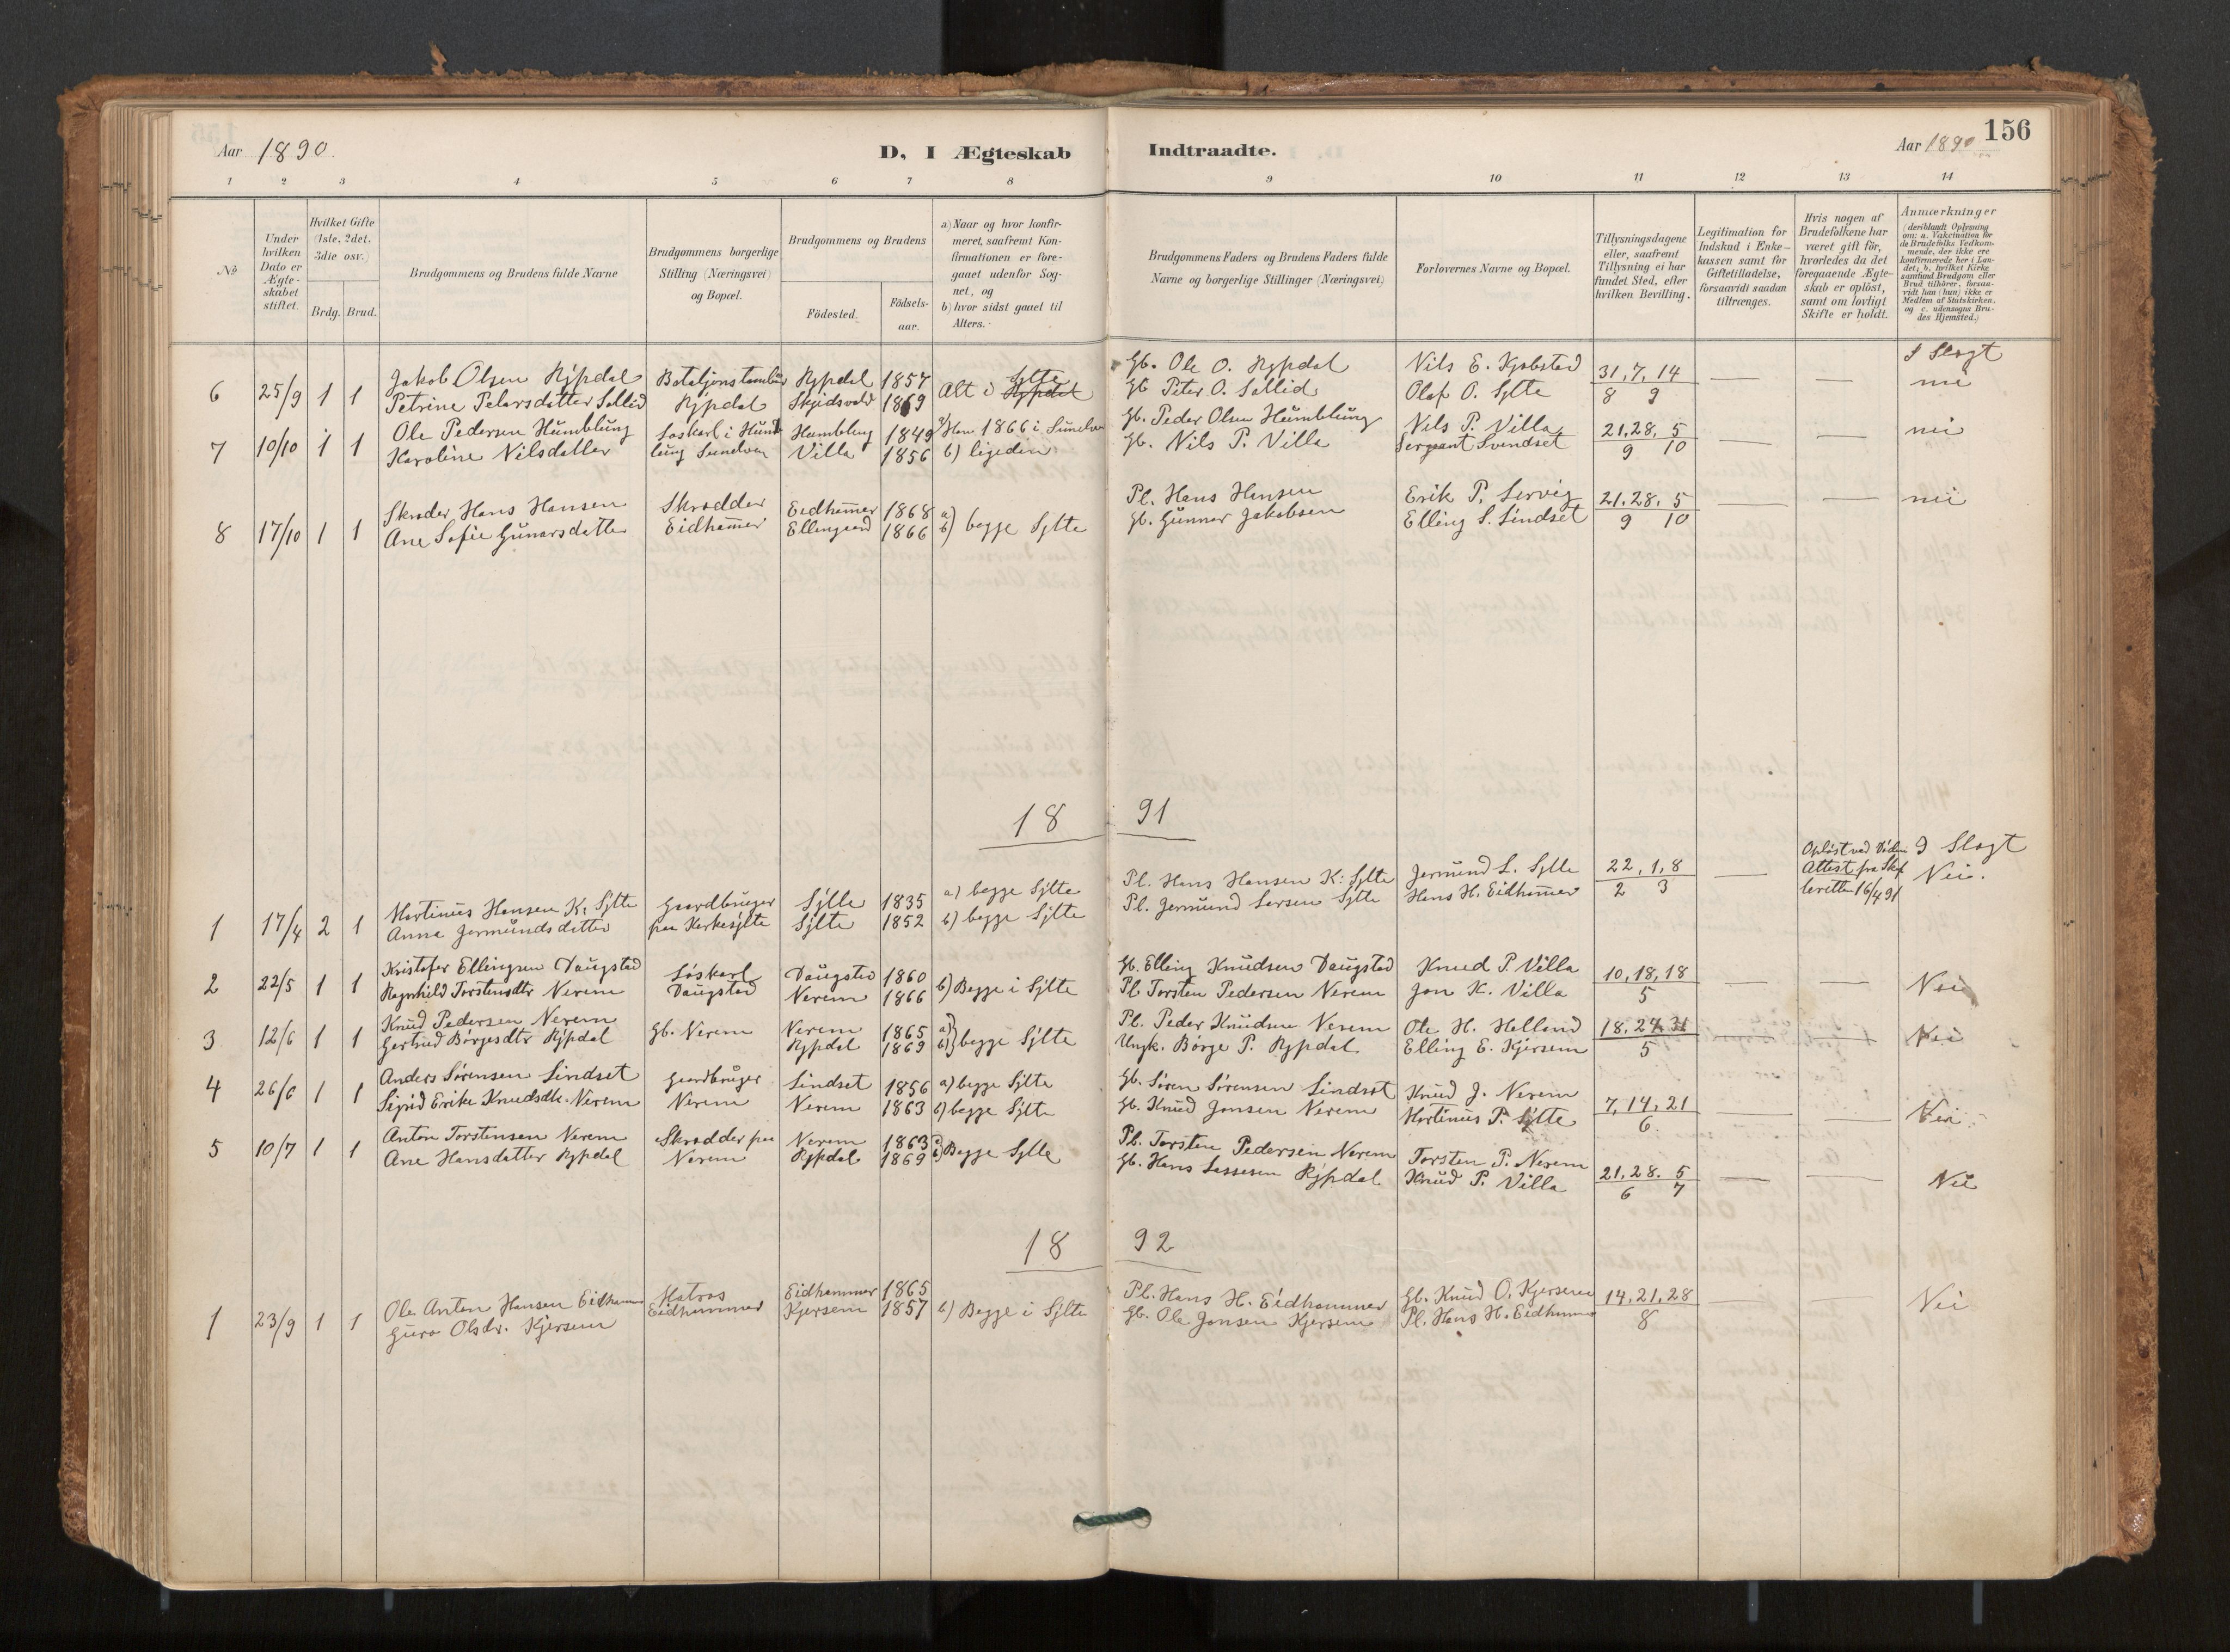 Aar 1890.
D, I Ægteskab
Indtraadte.
Aar 1890
156
1 2 3 4 5 6 7 8 9 10 11 12 13 14
№
Under hvilken Dato er Ægteskabet stiftet.
Hvilket Gifte (1ste, 2det, 3die osv.)
Brdg. Brud.
Brudgommens og Brudens fulde Navne
Brudgommens borgerlige Stilling (Næringsvei) og Bopæl.
Brudgommens og Brudens
Födested.
Födselsaar.
a) Naar og hvor konfirmeret, saafremt Konfirmationen er foregaaet udenfor Sognet, og
b) hvor sidst gaaet til Alters.
Brudgommens Faders og Brudens Faders fulde Navne og borgerlige Stillinger (Næringsvei)
Forlovernes Navne og Bopæl.
Tillysningsdagene eller, saafremt Tillysning ei har fundet Sted, efter hvilken Bevilling.
Legitimation for Indskud i Enkekassen samt for Giftetilladelse, forsaavidt saadan tiltrænges.
Hvis nogen af Brudefolkene har været gift för, hvorledes da det foregaaende Ægteskab er oplöst, samt om lovligt Skifte er holdt.
Anmærkninger (deriblandt Oplysning om: a. Vakcination for de Brudefolks Vedkommende, der ikke ere konfirmerede her i Landet; b. hvilket Kirkesamfund Brudgom eller Brud tilhörer, forsaavidt han (hun) ikke er Medlem af Statskirken, og c. udensogns Brudes Hjemsted.)
I Slægt
6 25/9 1 1 Jakob Olsen Rÿpdal Bataljonstambur Rypdal 1857 Alt i Rypdal Sylte Gb. Ole O. Rypdal Nils E. Kjøbstad 31, 7, 14 — — nei
Petrine Petersdatter Sollid Rÿpdal Skjidsvold 1869 Gb Peter O. Sollid Olaf O. Sylte 8 9
7 10/10 1 1 Ole Pedersen Humblung Løskarl i Humb Humblung 1849 a) Han 1866 i Sunelven Gb. Peder Olsen Humblung Nils P. Villa 21, 28, 5 — — nei
Karoline Nilsdatter lung Sunelven Villa 1856 b) ligeden Gb. Nils P. Villa Sergeant Svendset 9 10
8 17/10 1 1 Skræder Hans Hansen Skrædder Eidhamer 1868 a) Pl. Hans Hansen Erik P. Servig 21, 28, 5 — — nei
Ane Sofie Gunarsdatter Eidhamer Ellingaard 1866 b) begge Sylte Gb. Gunnar Jakobsen Elling S. Lindset 9 10
18 91
Opløst ved Døden I Slægt
1 17/4 2 1 Martinus Hansen K. Sylte Gaardbruger Sylte 1835 a) begge Sylte Pl. Hans Hansen K. Sylte Jermund L. Sylte 22, 1, 8 — Attest fra Skif Nei.
Anna Jermundsdatter paa Kirkesylte Sylte 1852 b) begge Sylte Pl. Jermund Larsen Sylte Hans H. Eidhamer 2 3 16/4 91
2 22/5 1 1 Kristofer Ellingsen Daugstad Løskarl Daugstad 1860 Gb. Elling Knudsen Daugstad Knud P. Villa 10, 18, 18 — — Nei
Ragnhild Torstensdtr Nerem Daugstad Nerem 1866 b) Begge i Sylte Pl Torsten Pedersen Nerem Jon K. Villa 5
3 12/6 1 1 Knud Pedersen Nerem Gb. Nerem Nerem 1865 a) Pl. Peder Knudsen Nerem Ole H. Helland 18, 24, 31 — — Nei
Gertrud Børgesdtr Rÿpdal Rypdal 1869 b) begge Sylte Ungk. Børge P. Rypdal. Elling E. Kjersem 5
4 26/6 1 1 Anders Sørensen Lindset Gaardbruger Lindset 1856 a) begge Sylte Gb. Søren Sørensen Lindset Knud J. Nerem 7, 14, 21 — — Nei
Sigrid Erike Knudsdtr. Nerem Nerem Nerem 1863 b) begge Sylte Gb. Knud Jonsen Nerem Martinus P. Sylte 6.
5 10/7 1 1 Anton Torstensen Nerem Skrædder paa Nerem 1863 a) Pl. Torsten Pedersen Nerem Torsten P. Nerem 21, 28. 5 — — Nei
Ane Hansdatter Rypdal Nerem Rypdal 1869 b) Begge Sylte Gb. Hans Lassesen Rÿpdal Knud P. Villa 6 7
18 92
1 23/9 1 1 Ole Anton Hansen Eidhammer Matros Eidhammer 1865 Pl. Hans H. Eidhammer Gb. Knud O. Kjersem 14, 21, 28 — — Nei
Guro Olsdr. Kjersem Eidhammer Kjersem 1857 b) Begge i Sylte Gb. Ole Jonsen Kjersem Pl. Hans H. Eidhammer 8